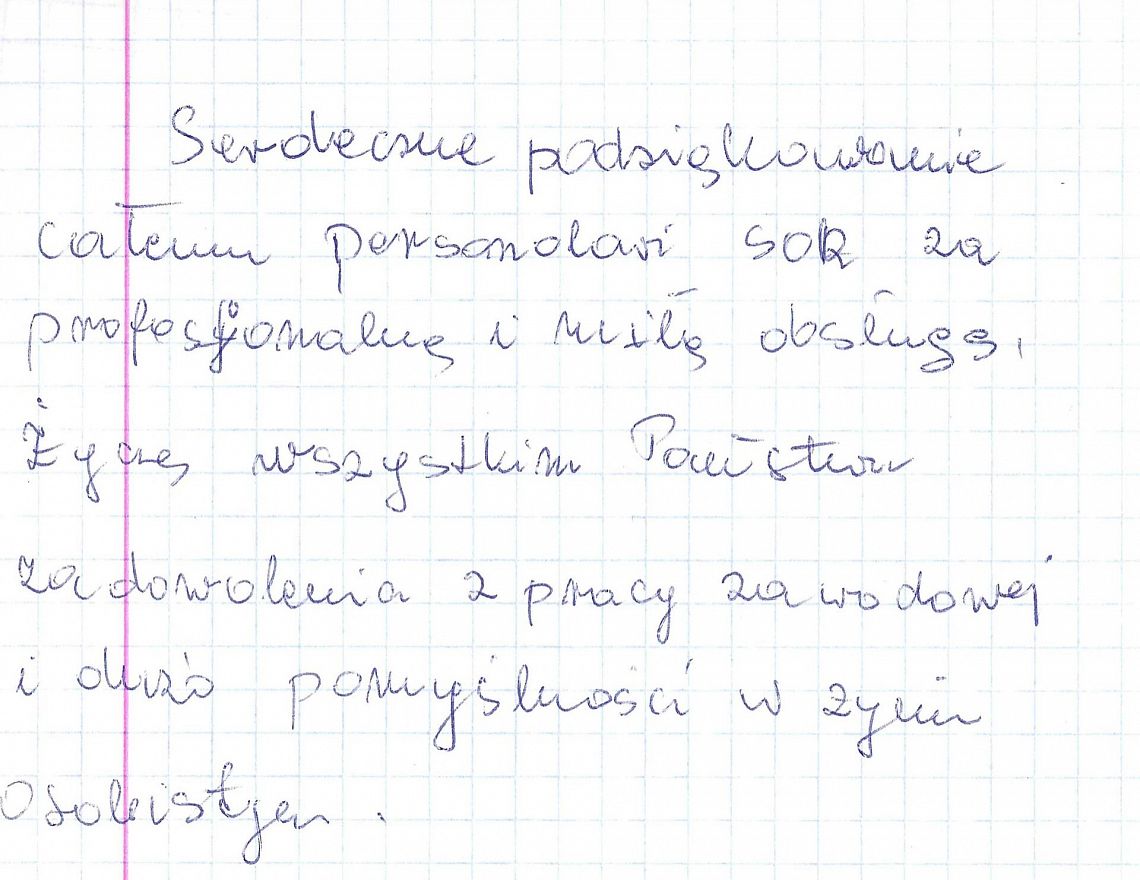 Serdeczne podziękowanie
całemu personelowi SOR za
profesjonalną i miłą obsługę.
Życzę wszystkim Państwu
zadowolenia z pracy zawodowej
i dużo pomyślności w życiu
osobistym.